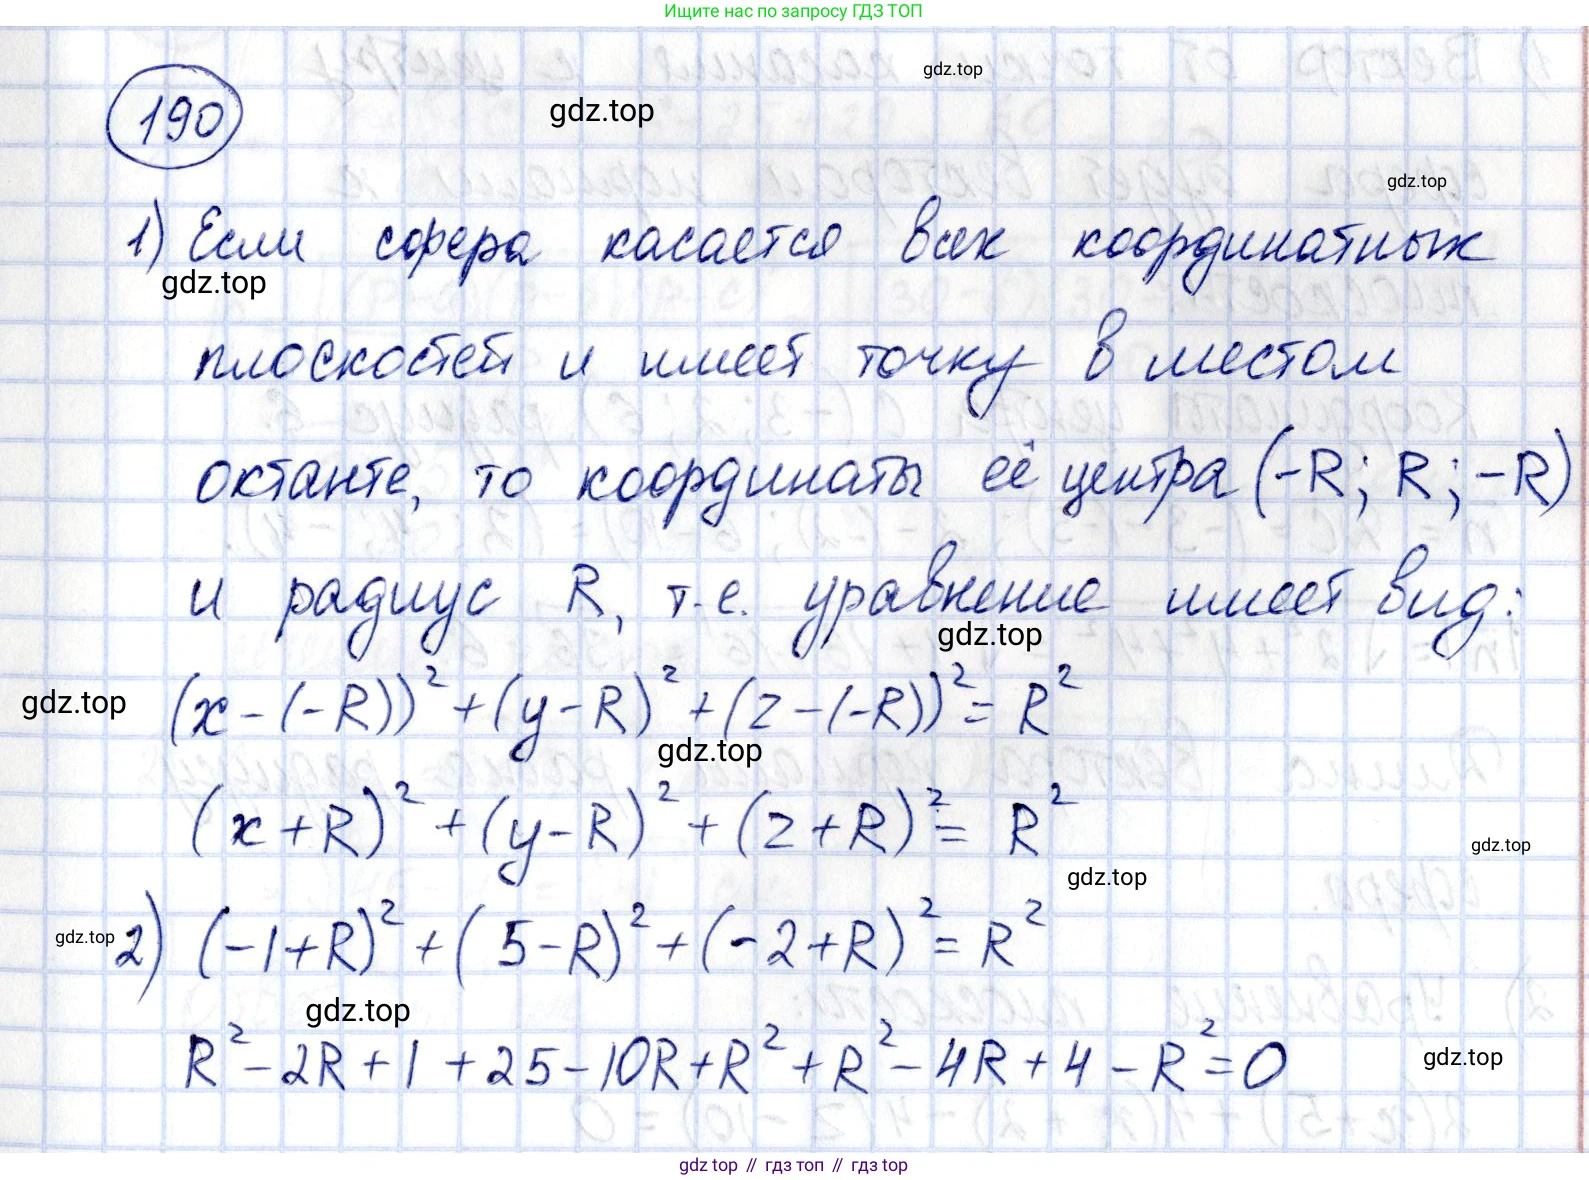 Ищите нас по запросу ГДЗ ТОП
gdz.top
gdz.top
190
gdz.top
1) Если сфера касается всех координатных
gdz.top
плоскостей и имеет точку в шестом
октанте, то координаты её центра (-R; R; -R)
и радиус R, т.е. уравнение имеет вид:
gdz.top
(x-(-R))²+(y-R)²+(z-(-R))²=R²
gdz.top
gdz.top
(x+R)²+(y-R)²+(z+R)²=R²
gdz.top
gdz.top
2) (-1+R)²+(5-R)²+(-2+R)²=R²
gdz.top
gdz.top
R²-2R+1+25-10R+R²+R²-4R+4-R²=0
gdz.top
gdz top // гдз топ // гдз top